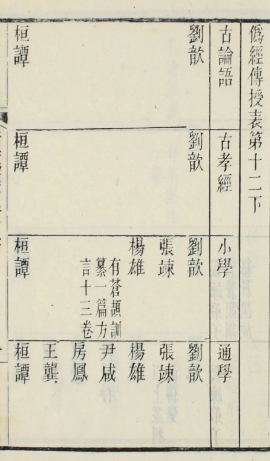 偽經傳授表第十二下
古論語
劉歆
桓譚
古孝經
劉歆
桓譚
小學
劉歆
張竦
楊雄
有蒼頡訓
纂一篇方
言十三卷
桓譚
通學
劉歆
張竦
楊雄
尹咸
房鳳
王龔
桓譚